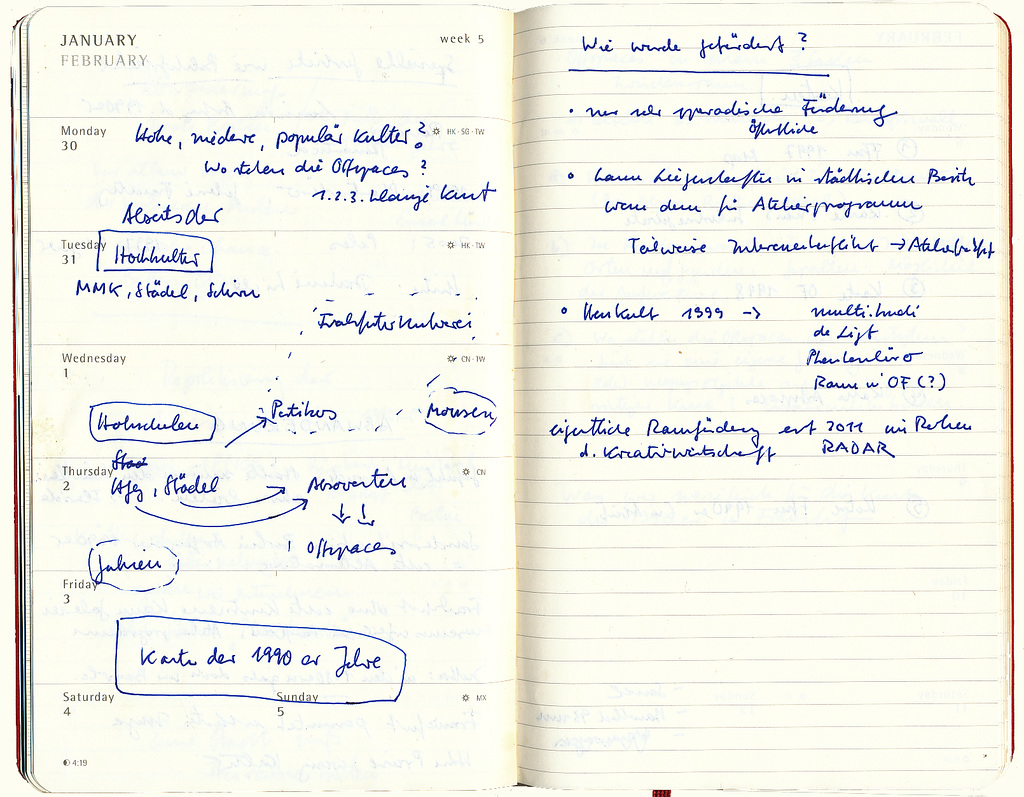 JANUARY
FEBRUARY
week 5
Monday
30
HK · SO · TW
Hohe, niedere, populär Kultur?
Wo stehen die Offspaces?
1.2.3. klassige Kunst
Abseits der
Tuesday
31
HK · TW
Hochkultur
MMK, Städel, Schirn
Frankfurter Kunstverein
Wednesday
1
CN · TW
Hochschulen
Portikus
Mousonturm
Thursday
2
CN
HfG, Städel
Absolventen
Offspaces
Galerien
Friday
3
Karte der 1990er Jahre
Saturday
4
Sunday
5
MX
4:19
Wie wurde gefördert?
• nur sehr sporadische Förderung
öffentliche
• kaum Liegenschaften in städtischem Besitz
wenn dann für Atelierprogramm
Teilweise → Atelierfrankfurt
• 1999 → multi.trudi
de Ligt
Phantombüro
Raum in OF (?)
eigentliche Raumförderung erst 2011 im Rahmen
d. Kreativwirtschaft RADAR